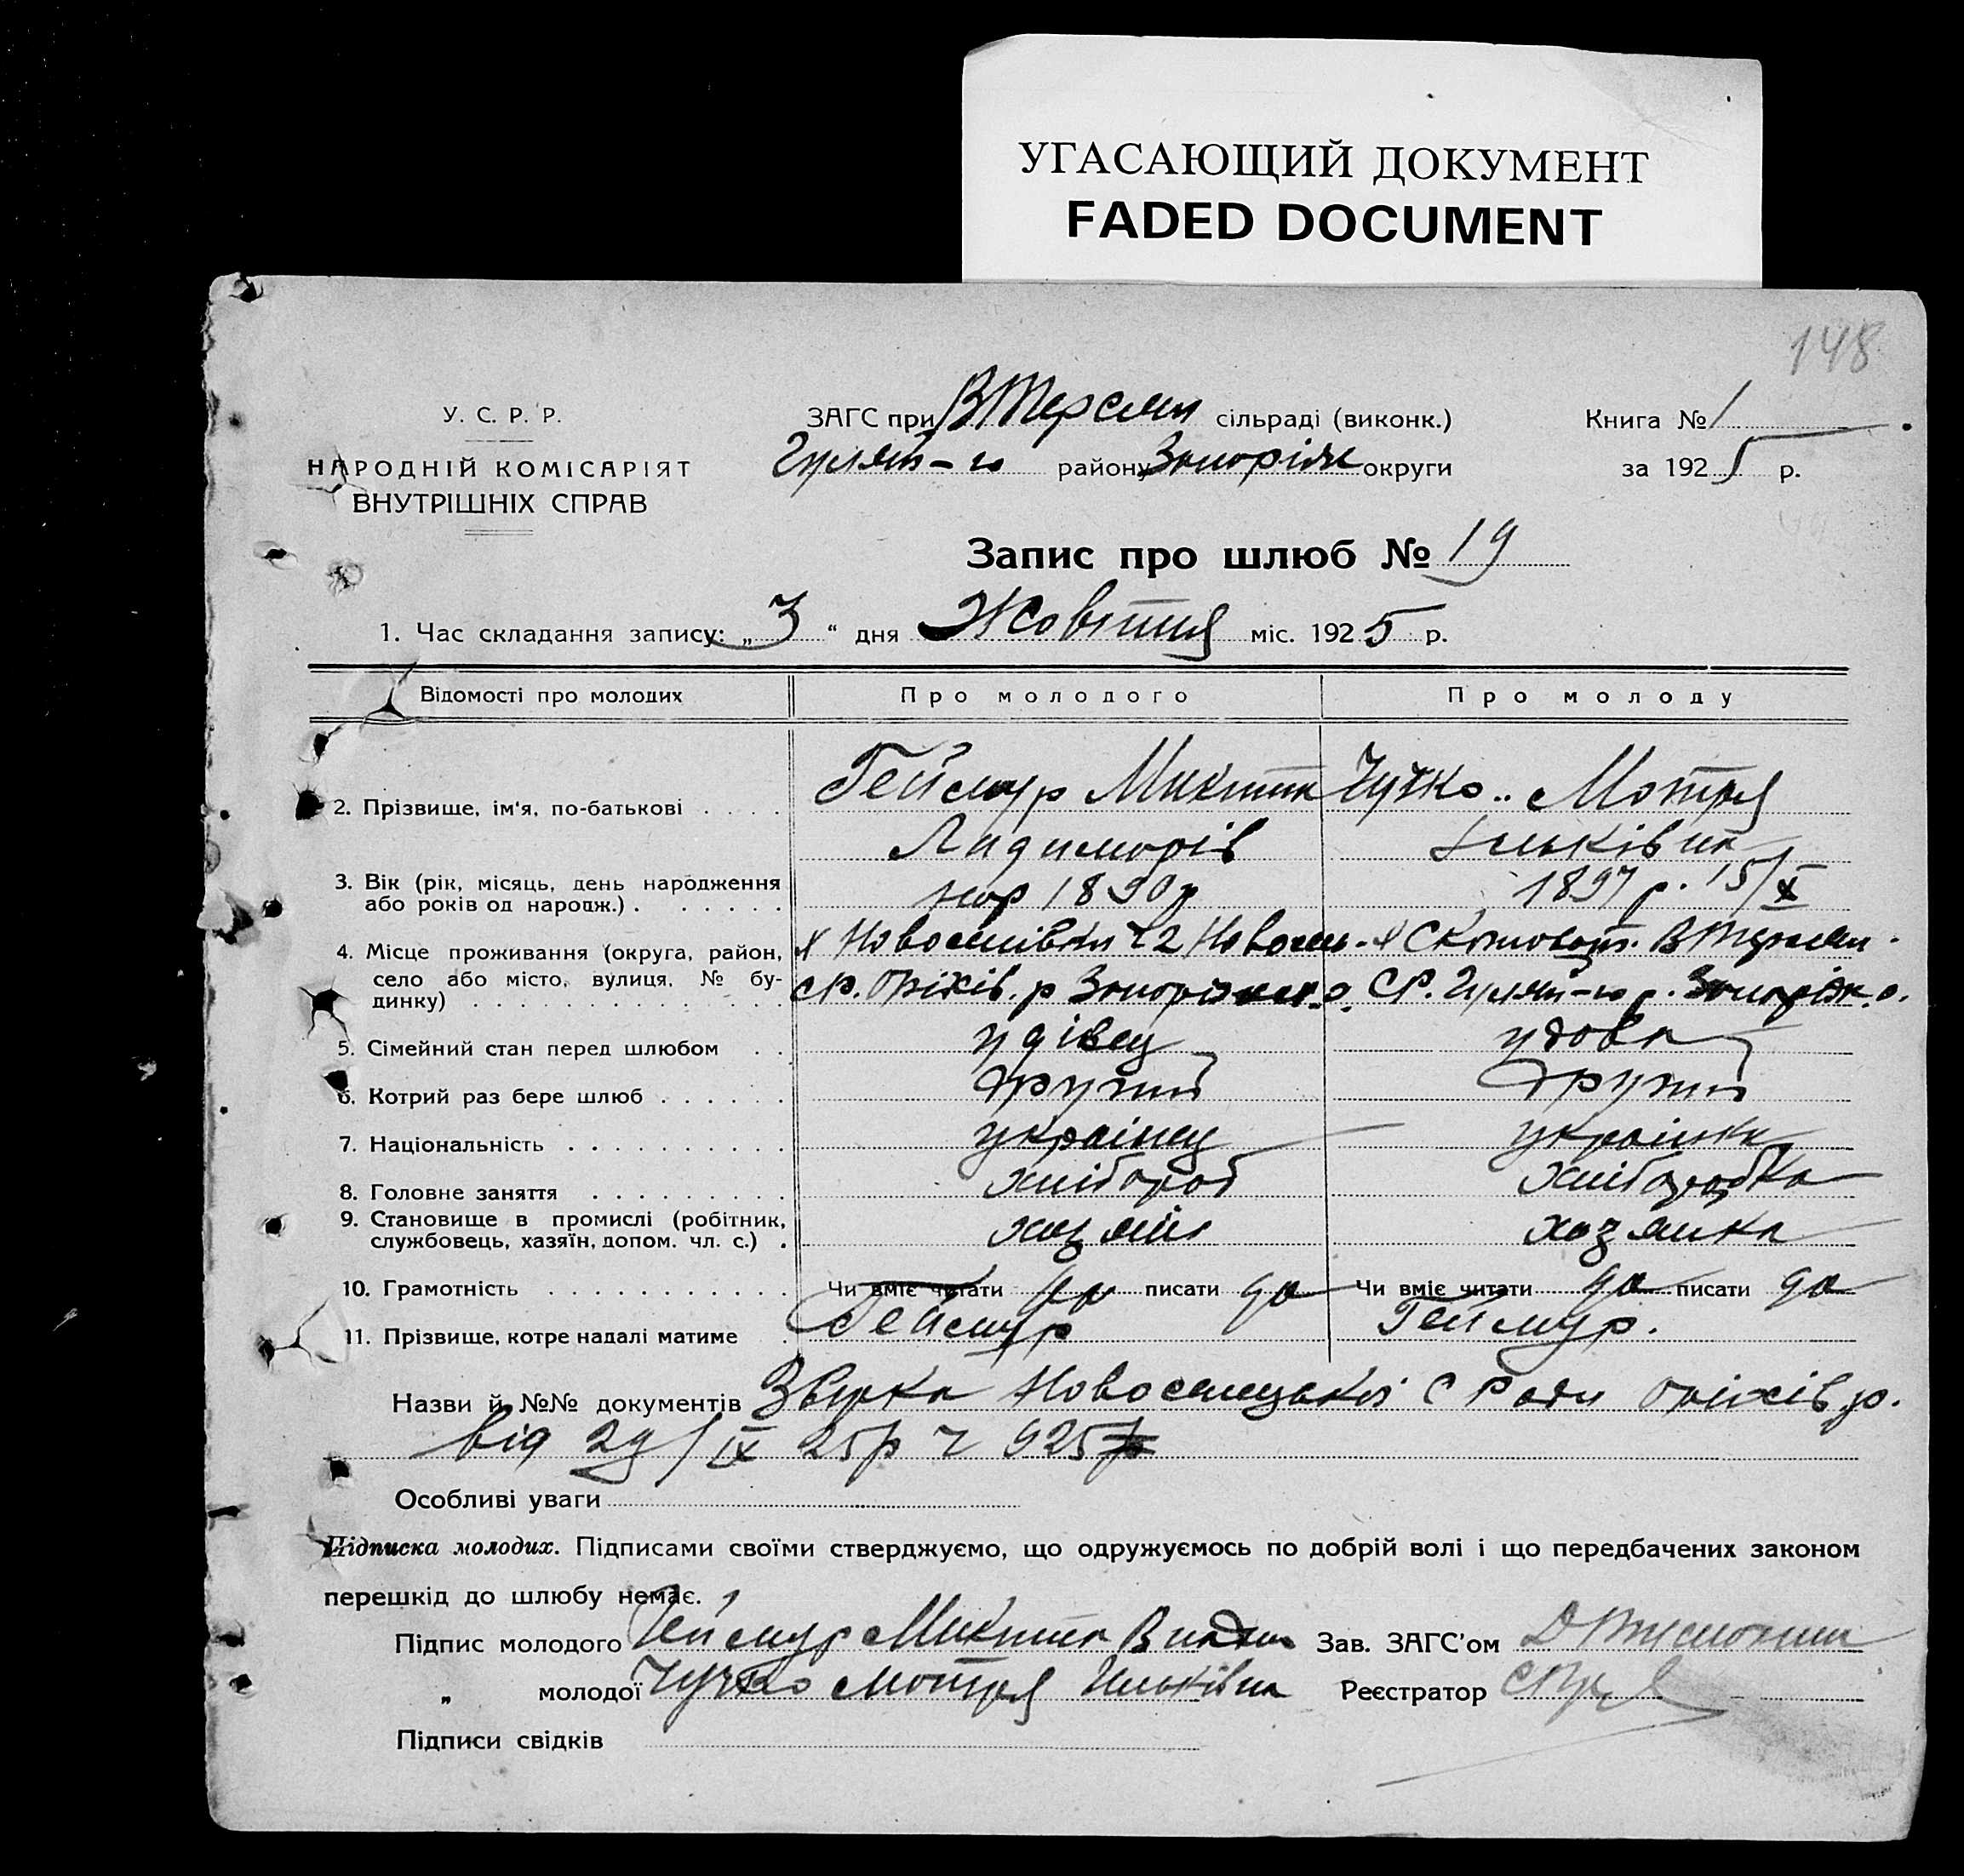 УГАСАЮЩИЙ ДОКУМЕНТ
FADED DOCUMENT
148
У. С. Р. Р.
НАРОДНІЙ КОМІСАРІЯТ
ВНУТРІШНІХ СПРАВ
ЗАГС при ВТерсян сільраді (виконк.)
Гуляй-го району Запоріж округи
Книга № 1
за 1925 р.
Запис про шлюб № 19
1. Час складання запису: „3“ дня Жовтня міс. 1925 р.
Відомості про молодих Про молодого Про молоду
2. Прізвище, ім'я, по-батькові . . . . Геймур Микита Чучко Мотря
Ільківна
3. Вік (рік, місяць, день народження
або років од народж.) . . . . . . нар 1890р 1897 р. 15/X
4. Місце проживання (округа, район,
село або місто, вулиця, № бу-
динку) . . . . . . . . . . . . . .
х Новоселівка ч2 Новосел- х В Терсян.
СР. Оріхів. р Запорізьк.о. СР. Гуляй-го р. Запоріж.о.
5. Сімейний стан перед шлюбом . . удівец удова
6. Котрий раз бере шлюб . . . . . . другий другий
7. Національність . . . . . . . . . . українец українка
8. Головне заняття . . . . . . . . . хлібороб хліборобка
9. Становище в промислі (робітник,
службовець, хазяїн, допом. чл. с.) . хазяїн хазяйка
10. Грамотність . . . . . . . . . . . Чи вміє читати да писати да Чи вміє читати да писати да
11. Прізвище, котре надалі матиме . Геймур Геймур.
Назви й №№ документів Новоселецької С Ради Оріхів.р.
від 29/IX 25р ч 925
Особливі уваги
Підписка молодих. Підписами своїми стверджуємо, що одружуємось по добрій волі і що передбачених законом
перешкід до шлюбу немає.
Підпис молодого Геймур Микита Зав. ЗАГС'ом
„ молодої Чучко Мотря Ильківна Реєстратор
Підписи свідків